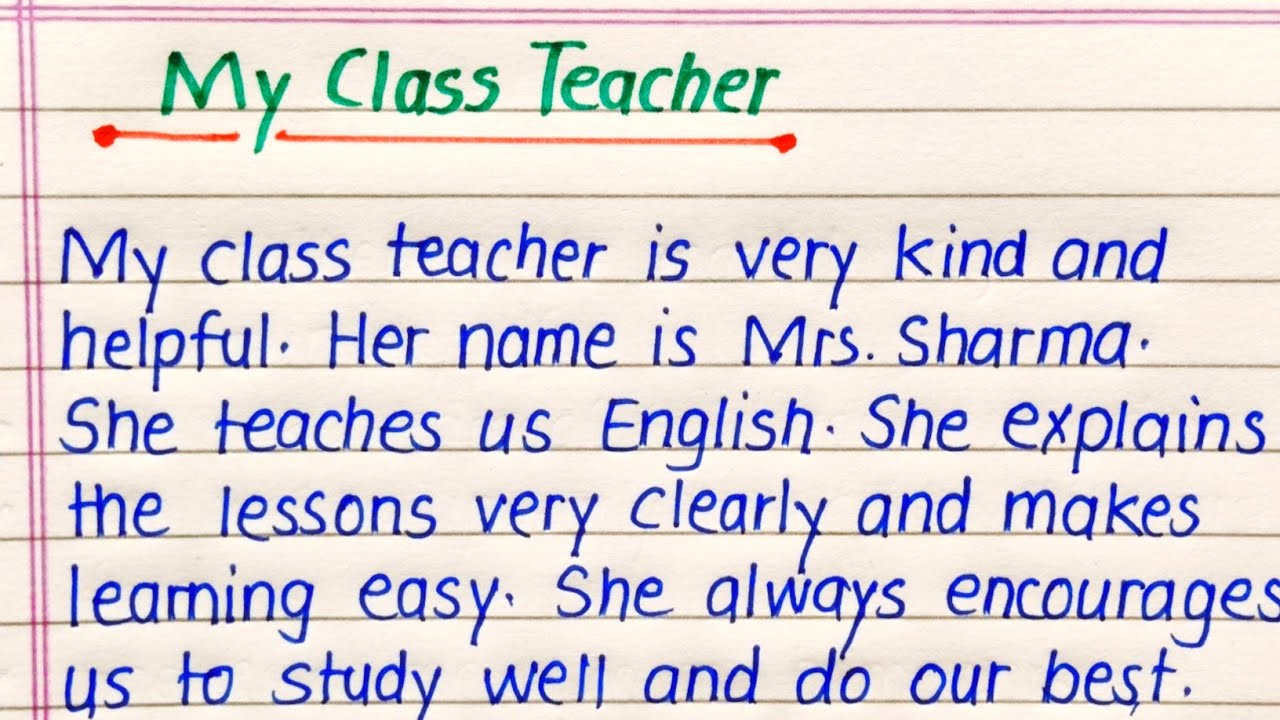 My Class Teacher
My class teacher is very kind and
helpful. Her name is Mrs. Sharma.
She teaches us English. She explains
the lessons very clearly and makes
learning easy. She always encourages
us to study well and do our best.